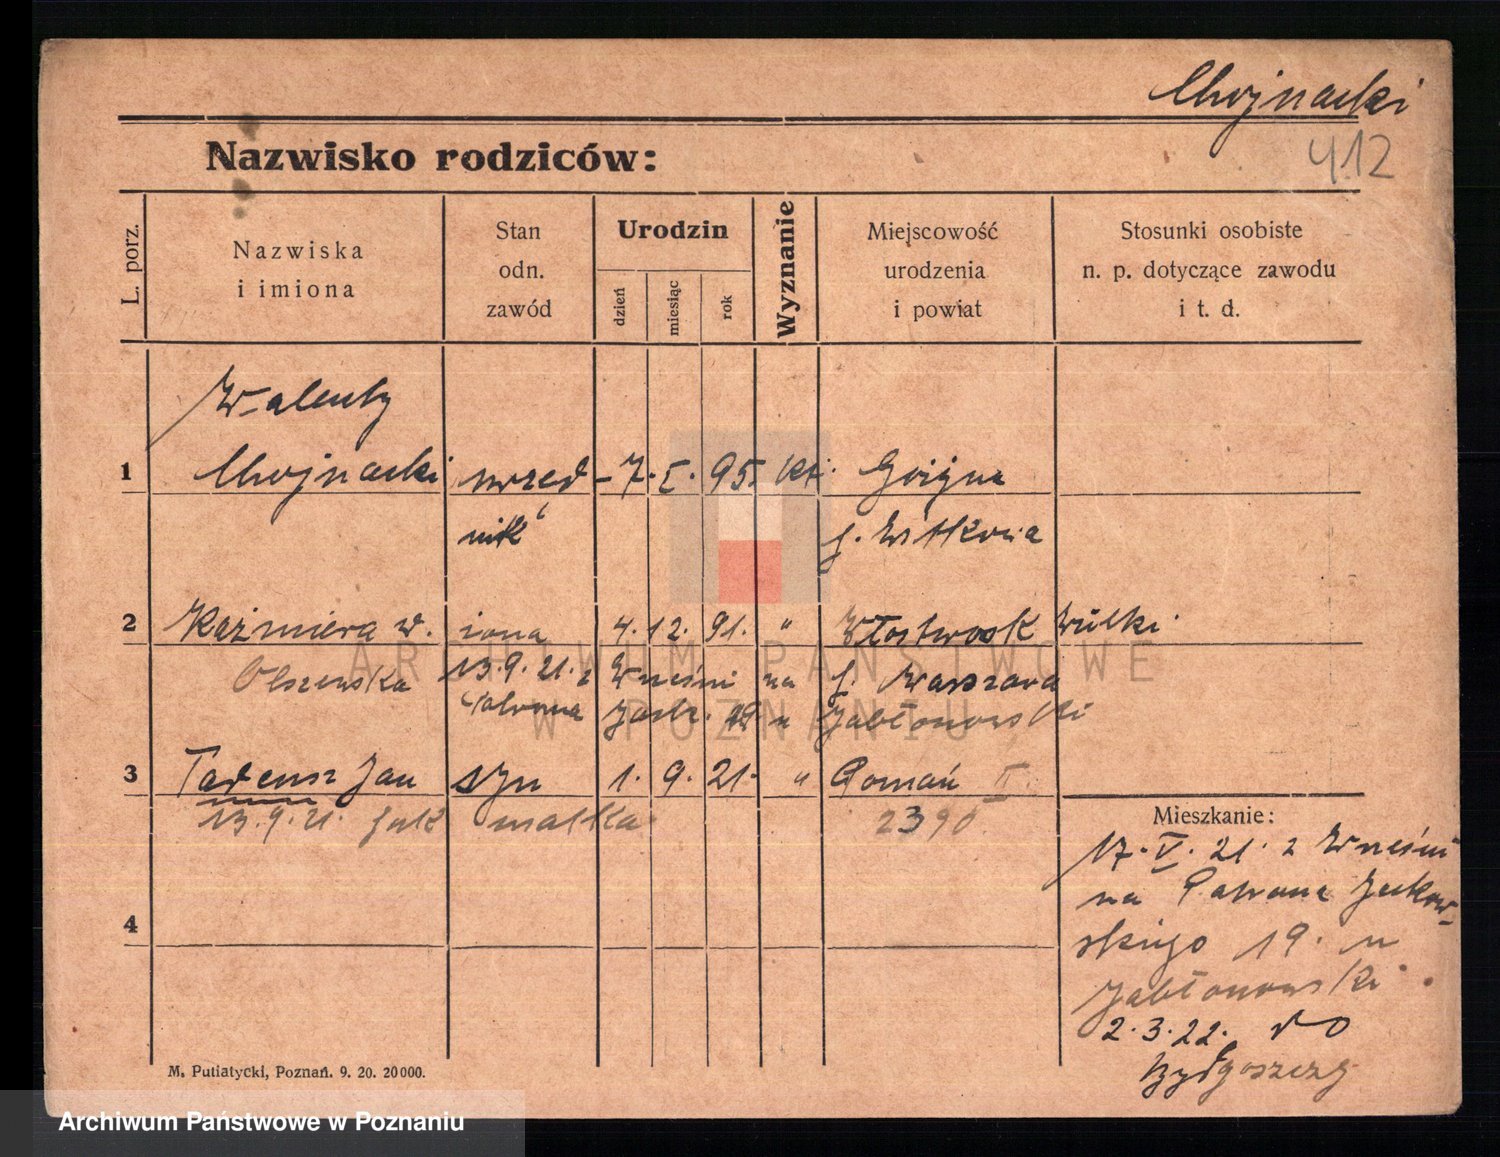 Chojnacki
412
Nazwisko rodziców:
L. porz.
Nazwiska i imiona
Stan odn. zawód
Urodzin
dzień
miesiąc
rok
Wyznanie
Miejscowość urodzenia i powiat
Stosunki osobiste n. p. dotyczące zawodu i t. d.
Walenty
1 Chojnacki urzęd- 7. I. 95. kt.
nik p. Witkowa
2 Kaźmiera w. żona 4. 12. 91. " Włostwosk Wilki
Olszewska 13.9.21. z Wrześni na p. Warszawa
Patrona Jack. 19 u Jabłonowski
3 Tadeusz Jan syn 1. 9. 21. " Poznań II
13.9.21. jak matka 2390.
4
Mieszkanie:
17. V. 21. z Wrześni
na Patrona Jackow-
skiego 19. u
Jabłonowski
2.3.22. do
Bydgoszczy
M. Putiatycki, Poznań. 9. 20. 20000.
ARCHIWUM PAŃSTWOWE
W POZNANIU
Archiwum Państwowe w Poznaniu